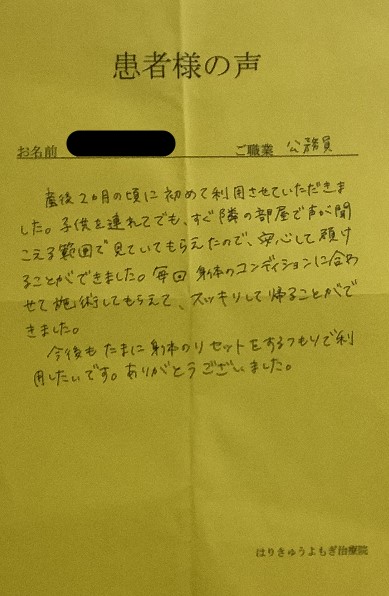 患者様の声
お名前 ご職業 公務員
産後2ヵ月の頃に初めて利用させていただきま
した。子供を連れてでも、すぐ隣の部屋で声が聞
こえる範囲で見ていてもらえたので、安心して預け
ることができました。毎回身体のコンディションに合わ
せて施術してもらえて、スッキリして帰ることがで
きました。
今後もたまに身体のリセットをするつもりで利
用したいです。ありがとうございました。
はりきゅうよもぎ治療院